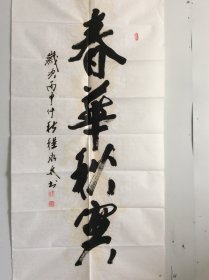 春華秋實
歲次丙申仲秋